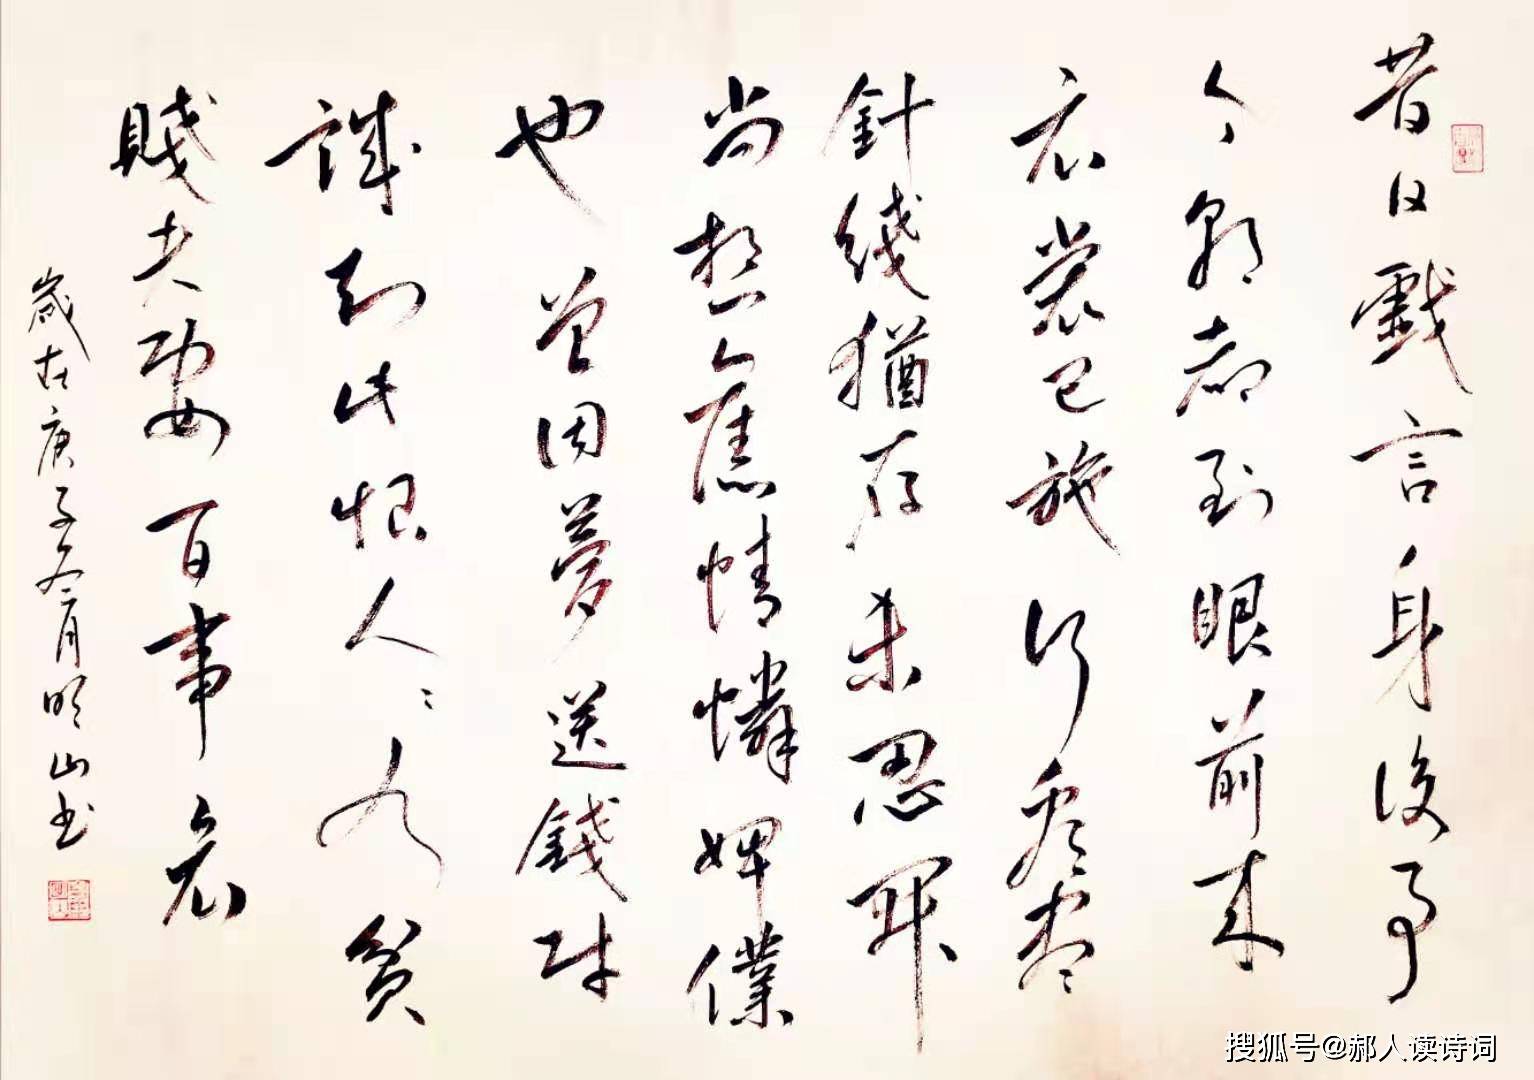 昔日戲言身後事
今朝都到眼前来
衣裳已施行看尽
針綫猶存未忍開
尚想舊情憐婢僕
也曾因夢送錢財
誠知此恨人々有貧
賤夫妻百事哀
歲在庚子冬月明山书
搜狐号@郝人读诗词